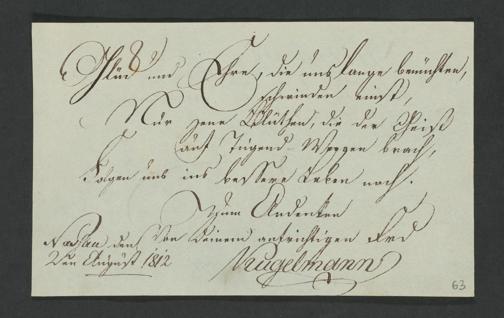 Glück und Ehre, die uns lange bemühten,
schwinden einst,
Nur jene Blüthen, die der Geist
auf Tugend-Weegen brach,
Folgen uns ins bessere Leben nach.
Zum Andenken
den Von Deinem aufrichtigen Frd
2ten August 1812 Kugelmann
63